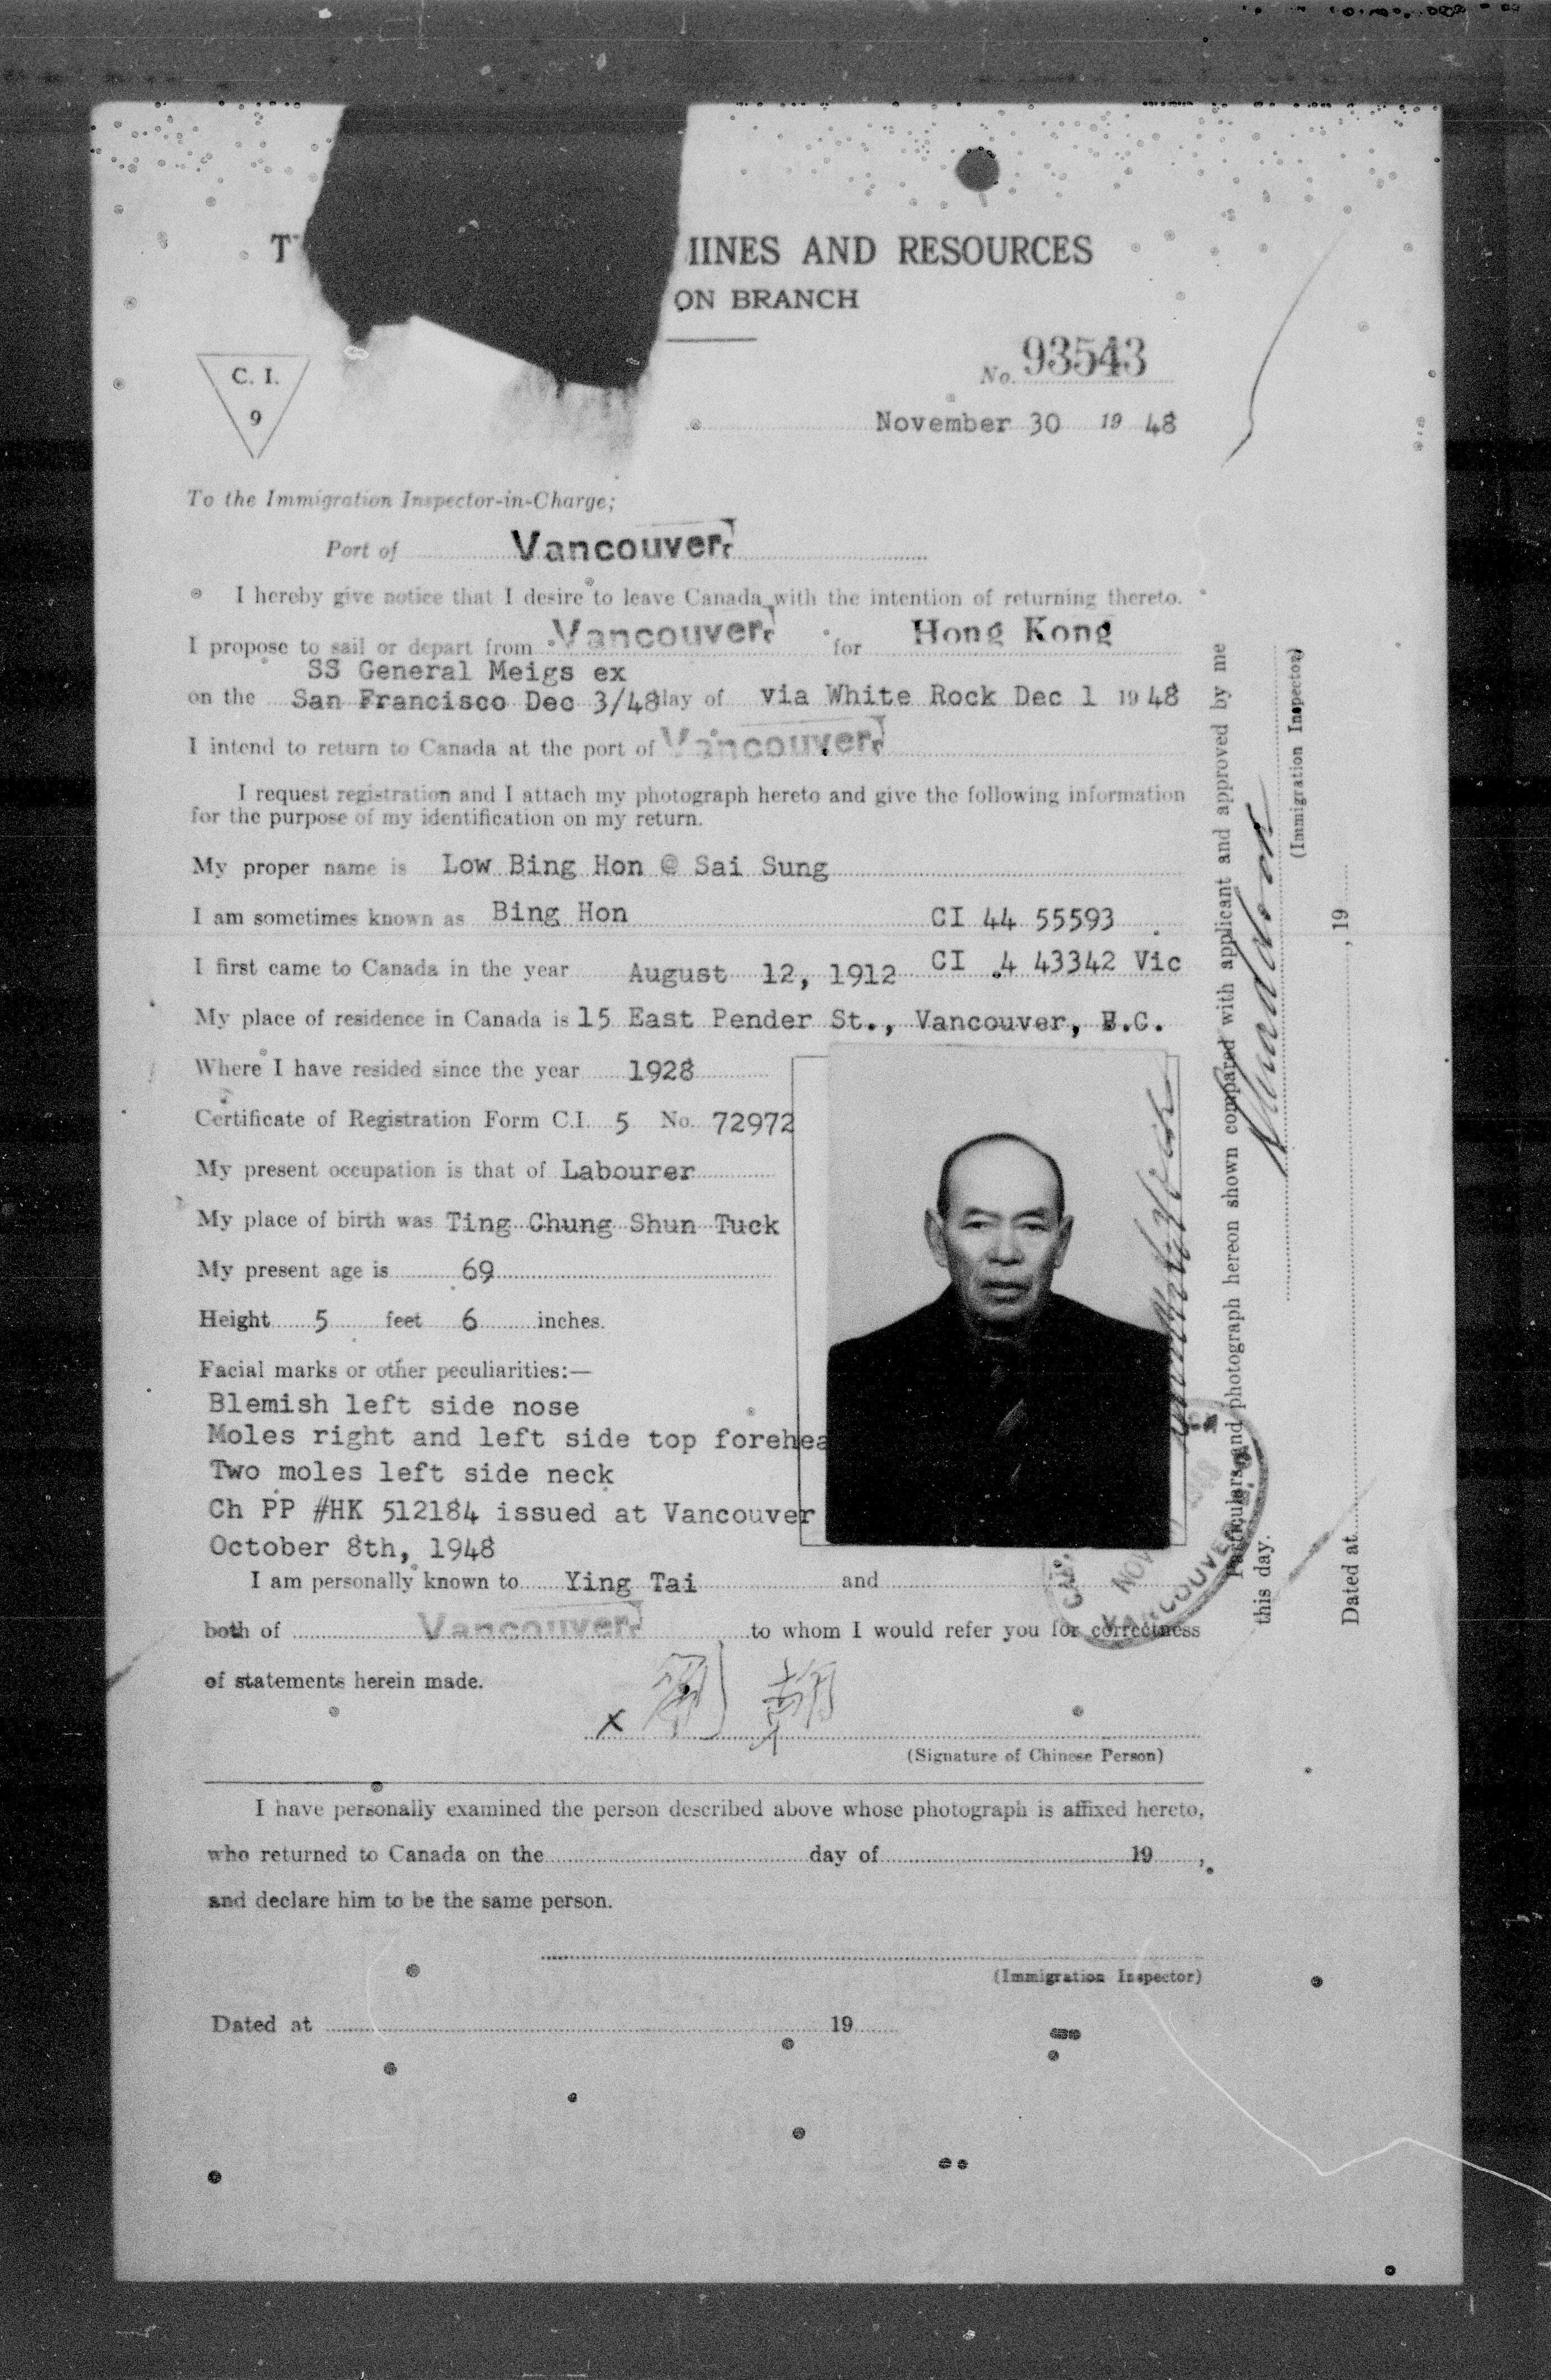 MINES AND RESOURCES
ON BRANCH
C. I.
9
No. 93543
November 30 19 48
To the Immigration Inspector-in-Charge;
Port of Vancouver
I hereby give notice that I desire to leave Canada with the intention of returning thereto.
I propose to sail or depart from Vancouver for Hong Kong
SS General Meigs ex
on the San Francisco Dec 3/48 day of via White Rock Dec 1 19 48
I intend to return to Canada at the port of Vancouver
I request registration and I attach my photograph hereto and give the following information
for the purpose of my identification on my return.
My proper name is Low Bing Hon @ Sai Sung
I am sometimes known as Bing Hon CI 44 55593
I first came to Canada in the year August 12, 1912 CI 4 43342 Vic
My place of residence in Canada is 15 East Pender St., Vancouver, B.C.
Where I have resided since the year 1928
Certificate of Registration Form C.I. 5 No. 72972
My present occupation is that of Labourer
My place of birth was Ting Chung Shun Tuck
My present age is 69
Height 5 feet 6 inches.
Facial marks or other peculiarities:—
Blemish left side nose
Moles right and left side top forehea
Two moles left side neck
Ch PP #HK 512184 issued at Vancouver
October 8th, 1948
I am personally known to Ying Tai and
both of Vancouver to whom I would refer you for correctness
of statements herein made.
x 劉
(Signature of Chinese Person)
I have personally examined the person described above whose photograph is affixed hereto,
who returned to Canada on the day of 19 ,
and declare him to be the same person.
(Immigration Inspector)
Dated at 19
Particulars and photograph hereon shown compared with applicant and approved by me
this day.
(Immigration Inspector)
Dated at , 19
NOV
VANCOUVER